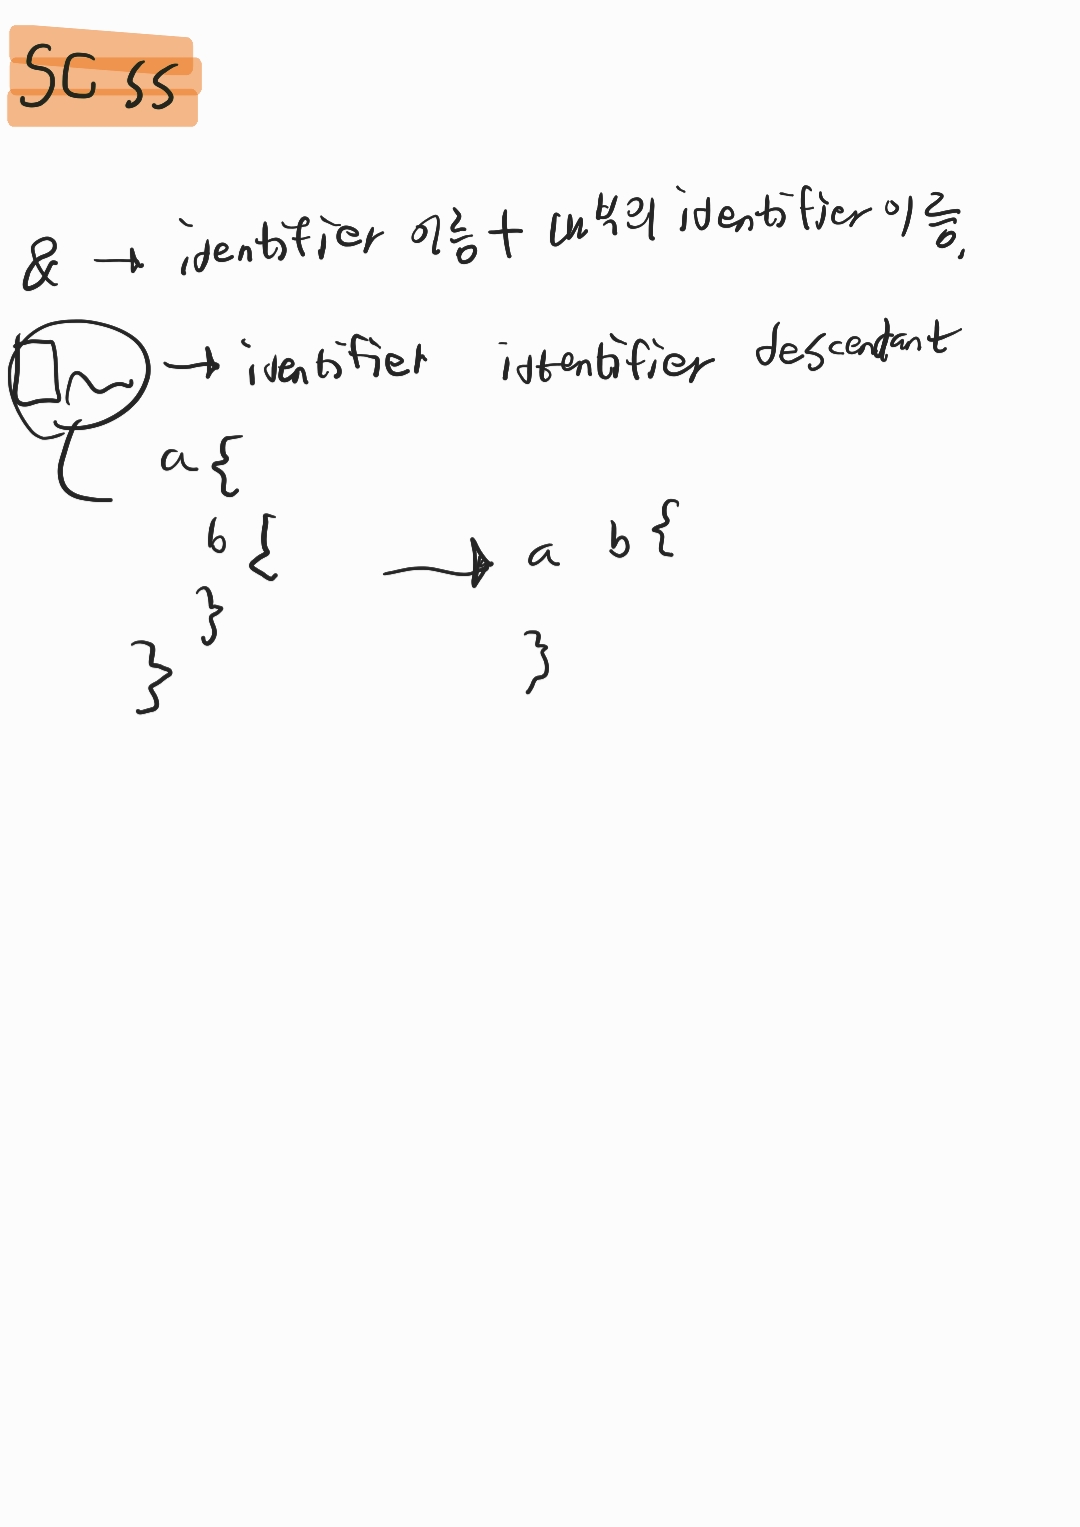 SCSS
& → identifier 이름 + 내부의 identifier 이름.
→ identifier identifier descendant
a {
b { → a b {
}
} }